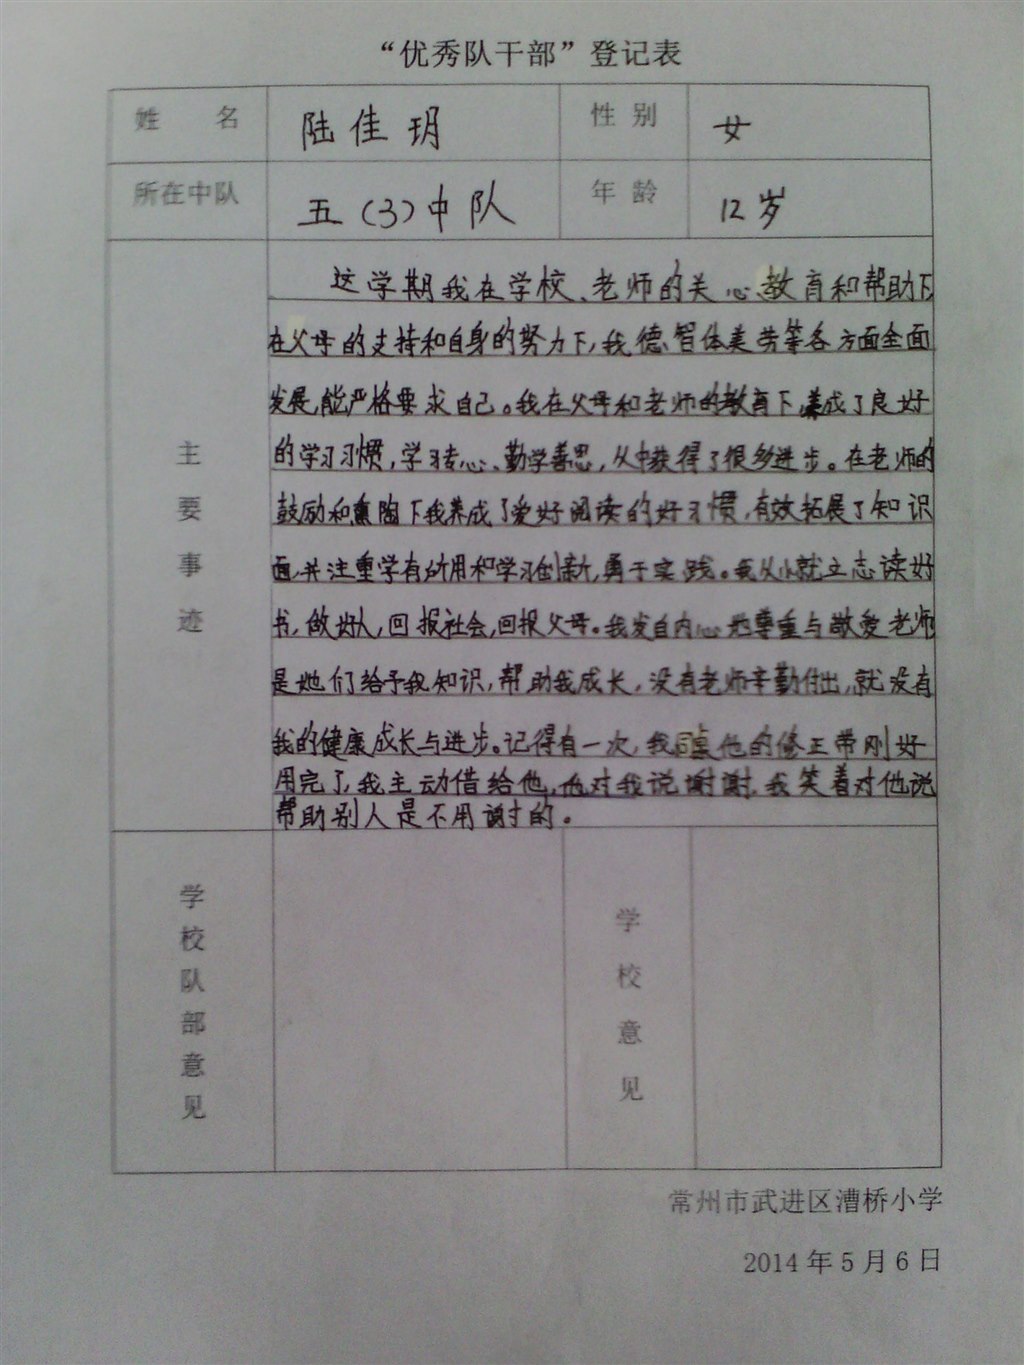 “优秀队干部”登记表
姓 名 陆佳玥 性 别 女
所在中队 五(3)中队 年 龄 12岁
主要事迹
这学期我在学校、老师的关心、教育和帮助下
在父母的支持和自身的努力下,我德、智体美劳等各方面全面
发展,能严格要求自己。我在父母和老师的教育下,养成了良好
的学习习惯,学习专心、勤学善思,从中获得了很多进步。在老师的
鼓励和熏陶下我养成了爱好阅读的好习惯,有效拓展了知识
面,并注重学有所用和学习创新,勇于实践。我从小就立志读好
书,做好人,回报社会,回报父母。我发自内心地尊重与敬爱老师
是她们给予我知识,帮助我成长,没有老师辛勤付出,就没有
我的健康成长与进步。记得有一次,我同桌他的修正带刚好
用完了,我主动借给他,他对我说谢谢,我笑着对他说
帮助别人是不用谢的。
学校队部意见
学校意见
常州市武进区漕桥小学
2014年5月6日